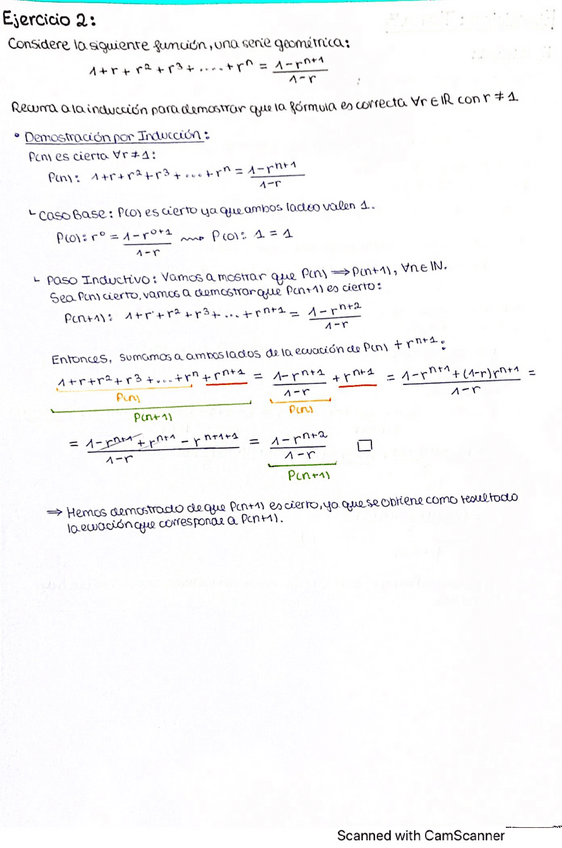 Ejercicio 2:
Considere la siguiente función, una serie geométrica:
1+r+r²+r³+.....+rⁿ = \frac{1-r^{n+1}}{1-r}
Recurra a la inducción para demostrar que la fórmula es correcta ∀r∈ℝ con r≠1.
• Demostración por Inducción:
P(n) es cierta ∀r≠1:
P(n): 1+r+r²+r³+...+rⁿ = \frac{1-r^{n+1}}{1-r}
Caso Base: P(0) es cierto ya que ambos lados valen 1.
P(0): r⁰ = \frac{1-r^{0+1}}{1-r} ⇝ P(0): 1 = 1
Paso Inductivo: Vamos a mostrar que P(n) ⟹ P(n+1), ∀n∈ℕ.
Sea P(n) cierto, vamos a demostrar que P(n+1) es cierto:
P(n+1): 1+r+r²+r³+...+r^{n+1} = \frac{1-r^{n+2}}{1-r}
Entonces, sumamos a ambos lados de la ecuación de P(n) +r^{n+1}:
1+r+r²+r³+...+rⁿ+r^{n+1} = \frac{1-r^{n+1}}{1-r} + r^{n+1} = \frac{1-r^{n+1}+(1-r)r^{n+1}}{1-r} =
P(n) P(n)
P(n+1)
= \frac{1-r^{n+1}+r^{n+1}-r^{n+1+1}}{1-r} = \frac{1-r^{n+2}}{1-r} □
P(n+1)
⇒ Hemos demostrado de que P(n+1) es cierto, ya que se obtiene como resultado
la ecuación que corresponde a P(n+1).
Scanned with CamScanner